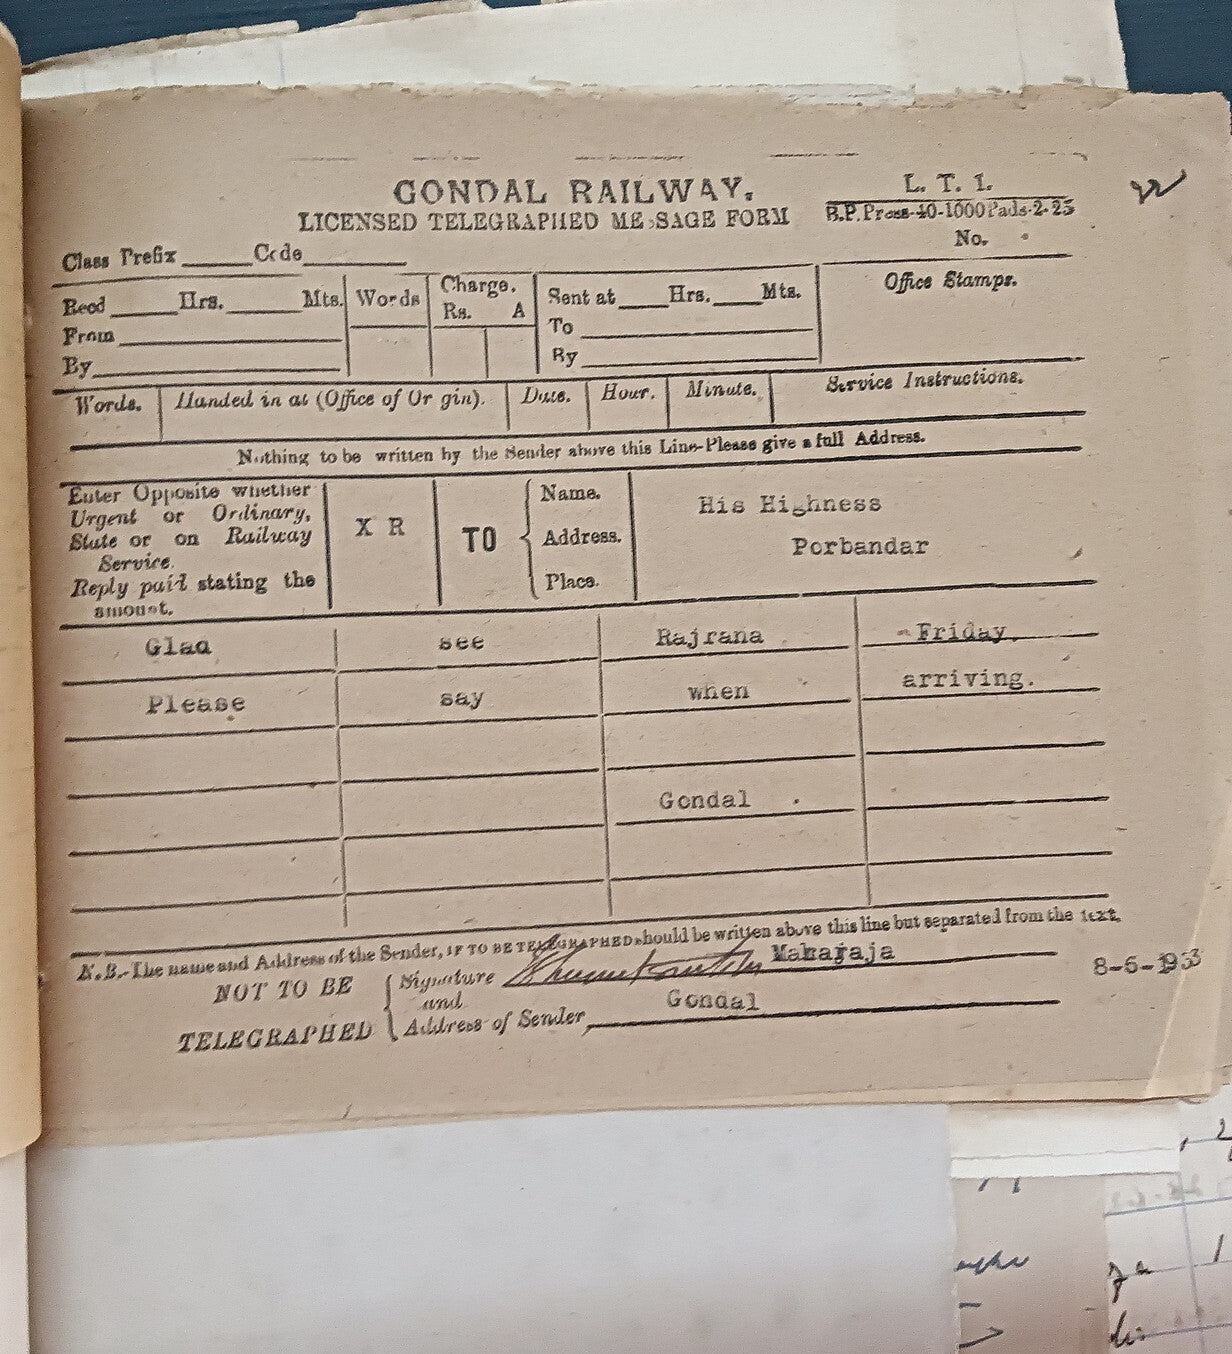 GONDAL RAILWAY.
LICENSED TELEGRAPHED MESSAGE FORM
L. T. I.
B.P. Press-40-1000 Pads-2-25
No.
Class Prefix Code
Recd Hrs. Mts. Words Charge. Sent at Hrs. Mts. Office Stamps.
Rs. A
From To
By By
Words. Handed in at (Office of Origin). Date. Hour. Minute. Service Instructions.
Nothing to be written by the Sender above this Line-Please give a full Address.
Enter Opposite whether
Urgent or Ordinary,
State or on Railway
Service.
Reply paid stating the
amount.
X R
TO
Name.
Address.
Place.
His Highness
Porbandar
Glad see Rajrana Friday.
Please say when arriving.
Gondal
N.B.-The name and Address of the Sender, IF TO BE TELEGRAPHED should be written above this line but separated from the text.
NOT TO BE
TELEGRAPHED
Signature
and
Address of Sender
Maharaja
Gondal
8-6-1933